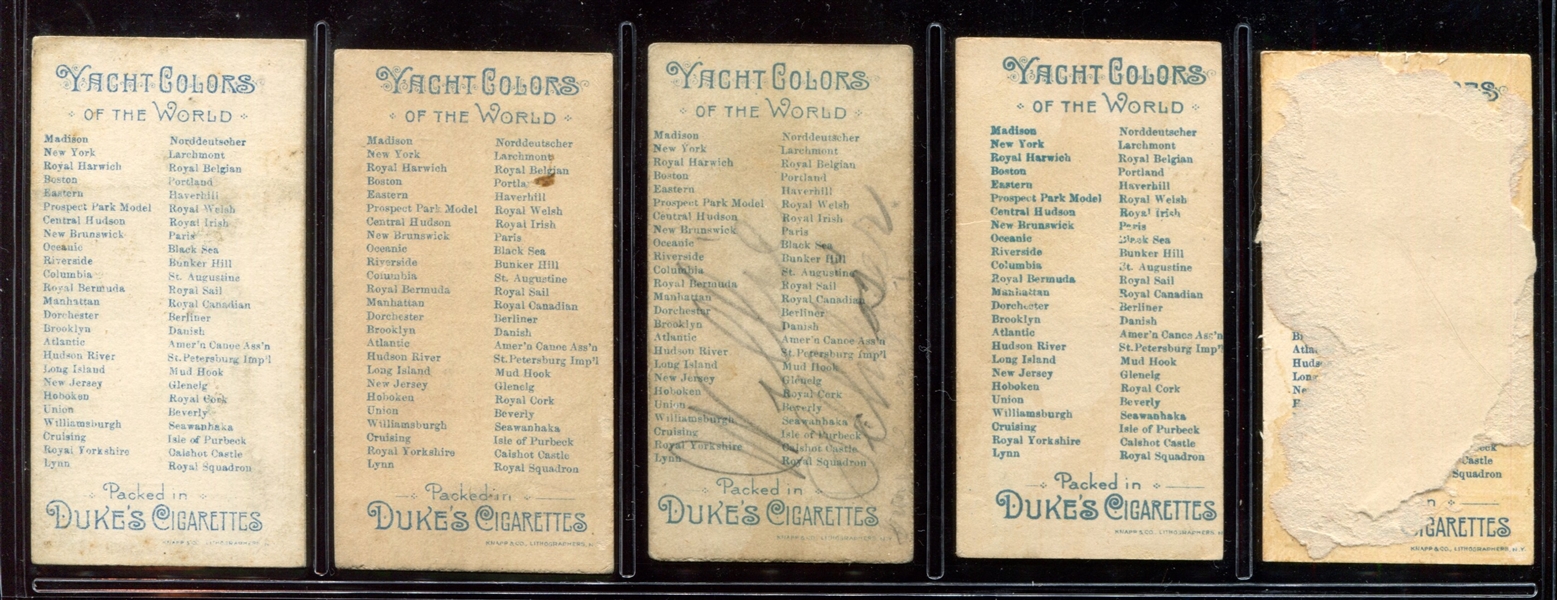 YACHT COLORS
OF THE WORLD
Madison
New York
Royal Harwich
Boston
Eastern
Prospect Park Model
Central Hudson
New Brunswick
Oceanic
Riverside
Columbia
Royal Bermuda
Manhattan
Dorchester
Brooklyn
Atlantic
Hudson River
Long Island
New Jersey
Hoboken
Union
Williamsburgh
Cruising
Royal Yorkshire
Lynn
Norddeutscher
Larchmont
Royal Belgian
Portland
Haverhill
Royal Welsh
Royal Irish
Paris
Black Sea
Bunker Hill
St. Augustine
Royal Sail
Royal Canadian
Berliner
Danish
Amer'n Canoe Ass'n
St. Petersburg Imp'l
Mud Hook
Glenelg
Royal Cork
Beverly
Seawanhaka
Isle of Purbeck
Calshot Castle
Royal Squadron
Packed in
DUKE'S CIGARETTES
KNAPP & CO., LITHOGRAPHERS, N
YACHT COLORS
OF THE WORLD
Madison
New York
Royal Harwich
Boston
Eastern
Prospect Park Model
Central Hudson
New Brunswick
Oceanic
Riverside
Columbia
Royal Bermuda
Manhattan
Dorchester
Brooklyn
Atlantic
Hudson River
Long Island
New Jersey
Hoboken
Union
Williamsburgh
Cruising
Royal Yorkshire
Lynn
Norddeutscher
Larchmont
Royal Belgian
Portla
Haverhill
Royal Welsh
Royal Irish
Paris
Black Sea
Bunker Hill
St. Augustine
Royal Sail
Royal Canadian
Berliner
Danish
Amer'n Canoe Ass'n
St. Petersburg Imp'l
Mud Hook
Glenelg
Royal Cork
Beverly
Seawanhaka
Isle of Purbeck
Calshot Castle
Royal Squadron
Packed in
DUKE'S CIGARETTES
KNAPP & CO., LITHOGRAPHERS, N
YACHT COLORS
OF THE WORLD
Madison
New York
Royal Harwich
Boston
Eastern
Prospect Park Model
Central Hudson
New Brunswick
Oceanic
Riverside
Columbia
Royal Bermuda
Manhattan
Dorchester
Brooklyn
Atlantic
Hudson River
Long Island
New Jersey
Hoboken
Union
Williamsburgh
Cruising
Royal Yorkshire
Lynn
Norddeutscher
Larchmont
Royal Belgian
Portland
Haverhill
Royal Welsh
Royal Irish
Paris
Black Sea
Bunker Hill
St. Augustine
Royal Sail
Royal Canadian
Berliner
Danish
Amer'n Canoe Ass'n
St. Petersburg Imp'l
Mud Hook
Glenelg
Royal Cork
Beverly
Seawanhaka
Isle of Purbeck
Calshot Castle
Royal Squadron
Willie
Packed in
DUKE'S CIGARETTES
KNAPP & CO., LITHOGRAPHERS
YACHT COLORS
OF THE WORLD
Madison
New York
Royal Harwich
Boston
Eastern
Prospect Park Model
Central Hudson
New Brunswick
Oceanic
Riverside
Columbia
Royal Bermuda
Manhattan
Dorchester
Brooklyn
Atlantic
Hudson River
Long Island
New Jersey
Hoboken
Union
Williamsburgh
Cruising
Royal Yorkshire
Lynn
Norddeutscher
Larchmont
Royal Belgian
Portland
Haverhill
Royal Welsh
Royal Irish
Paris
Black Sea
Bunker Hill
St. Augustine
Royal Sail
Royal Canadian
Berliner
Danish
Amer'n Canoe Ass'n
St. Petersburg Imp'l
Mud Hook
Glenelg
Royal Cork
Beverly
Seawanhaka
Isle of Purbeck
Calshot Castle
Royal Squadron
Packed in
DUKE'S CIGARETTES
KNAPP & CO., LITHOGRAPHERS, N
Br
Atla
Huds
Lon
Ne
Castle
Squadron
n
CIGARETTES
KNAPP & CO., LITHOGRAPHERS, N.Y.